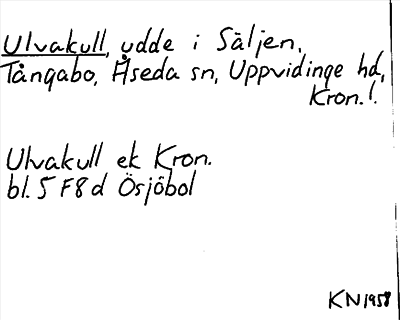 Ulvakull, udde i Säljen,
Tångabo, Åseda sn, Uppvidinge hd,
Kron.l.
Ulvakull ek Kron.
bl. 5 F 8 d Ösjöbol
KN 1958